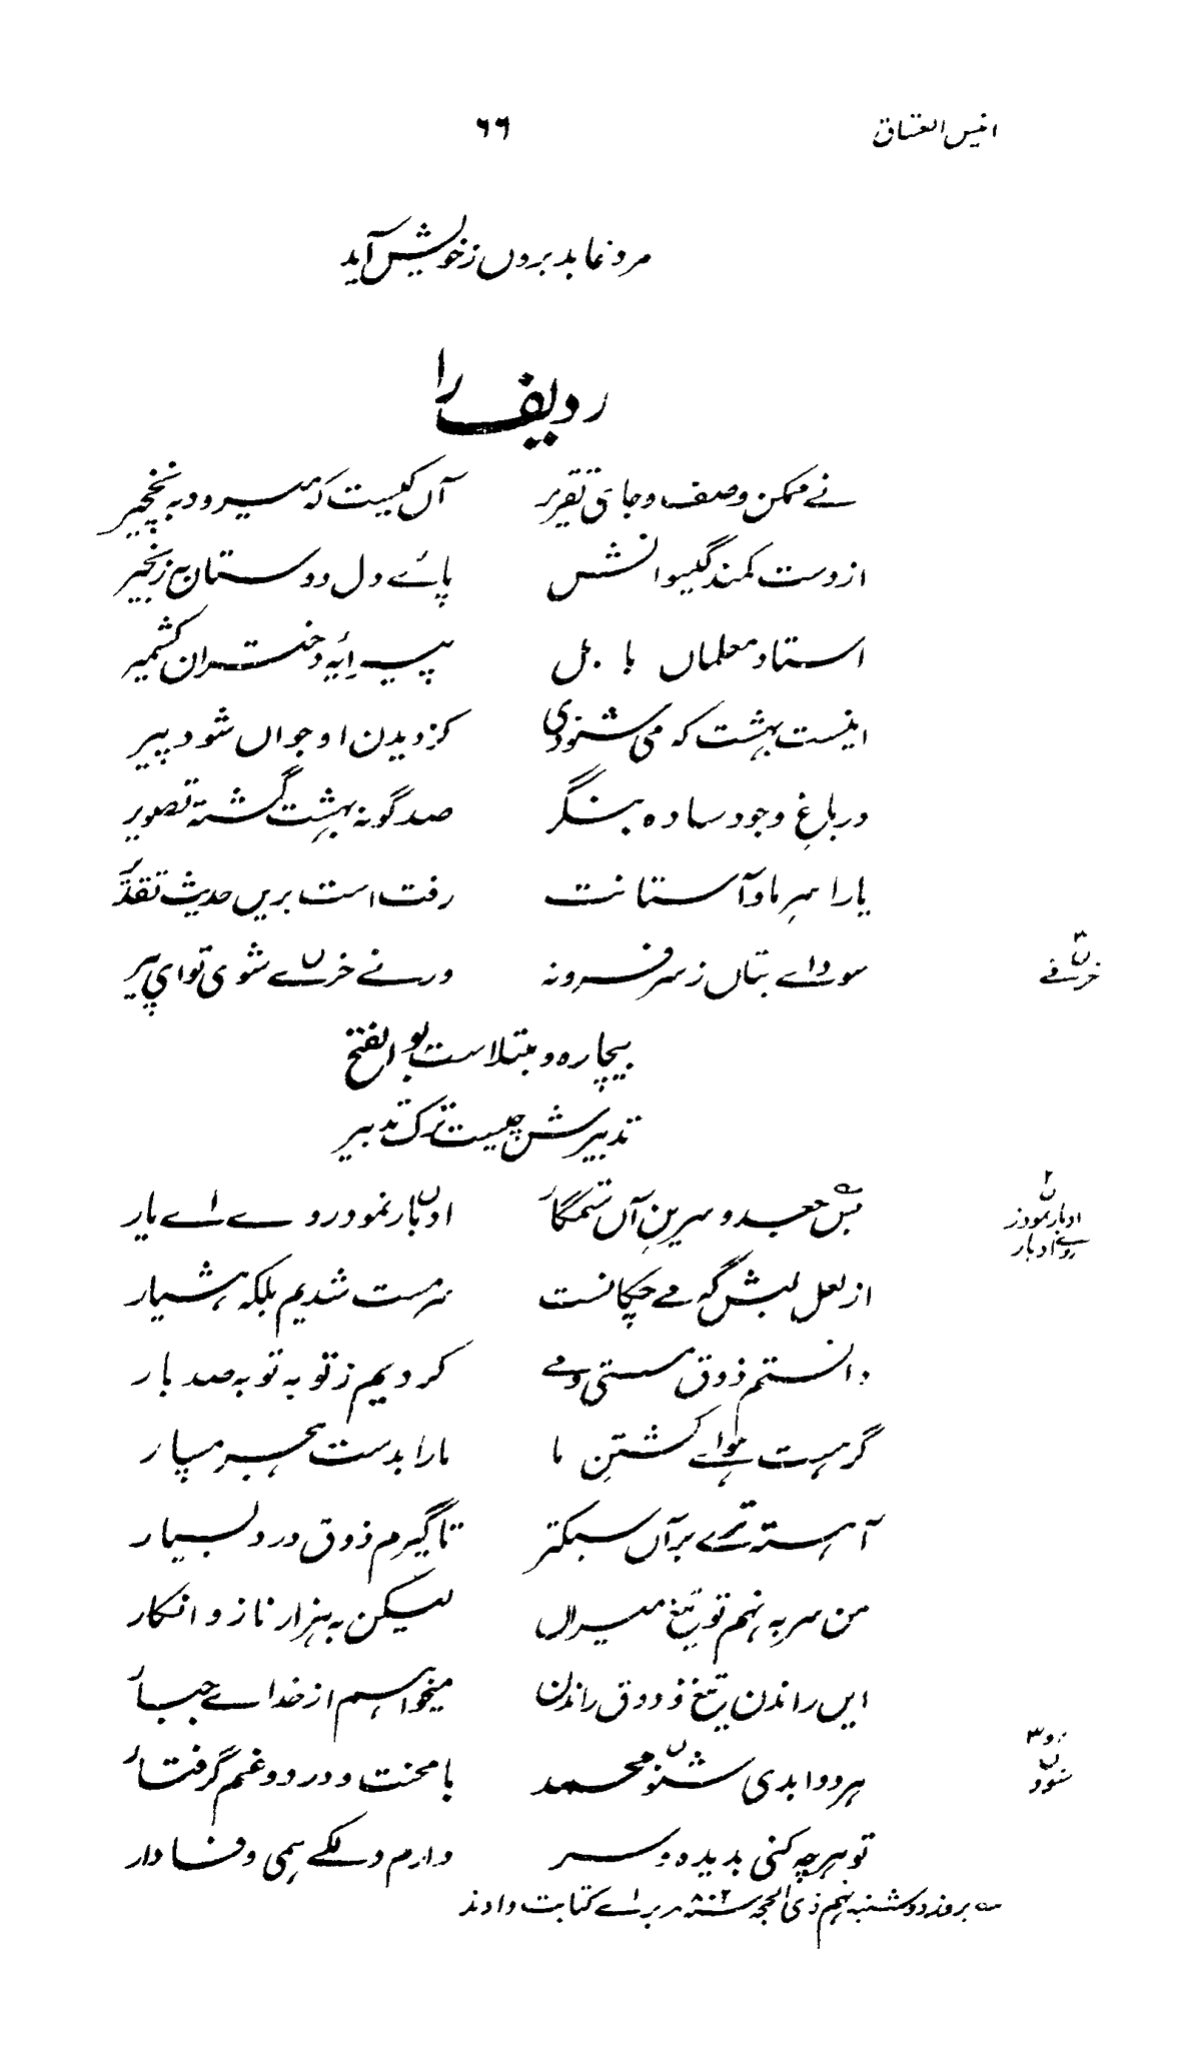 انیس العشاق ۶۶
مرد عابد بروں زخویش آید
ردیف را
نے ممکن وصف و جاے تقریر آں کیست که میرود به نخچیر
از دست کمند گیسوانش پائے دل دوستاں به زنجیر
استاد معلمان بابل پیرایۂ دختران کشمیر
اینست بهشت که می شنودی کز دیدن او جواں شود پیر
در باغِ وجود ساده بنگر صد گونه بهشت گشته تصویر
یارا سرِ ما و آستانت رفت است بریں حدیث تقدیر
سوداے بتاں ز سر فرو نه ورنے خرفے شوی تو اے پیر
خرفے
بیچاره و مبتلاست بوالفتح
تدبیرش چیست ترک تدبیر
بس جعد و سرینِ آں ستمگار ادبار نمود روے اے یار
ادبار نمود ز
روے ادبار
از لعل لبش گہ مے چکانست سرمست شدیم بلکه هشیار
دانستم ذوق مستی و مے کردیم ز توبه توبه صد بار
گر هست هواے کشتنِ ما ما را بدست هجر مسپار
آهسته ترے براں سبکتر تا گیرم ذوق درد بسیار
من سر به نهم تو تیغ میراں لیکن به هزار ناز و انکار
ایں راندن تیغ و ذوق راندن میخواهم از خداے جبار
هر دو ابدی شنو محمد با محنت و درد و غم گرفتار
شود
تو هرچه کنی بدیده و سر دارم دلکے همی وفادار
؎ بروز دوشنبه نهم ذی الحجه سنه ۸۰۲ براے کتابت دادند